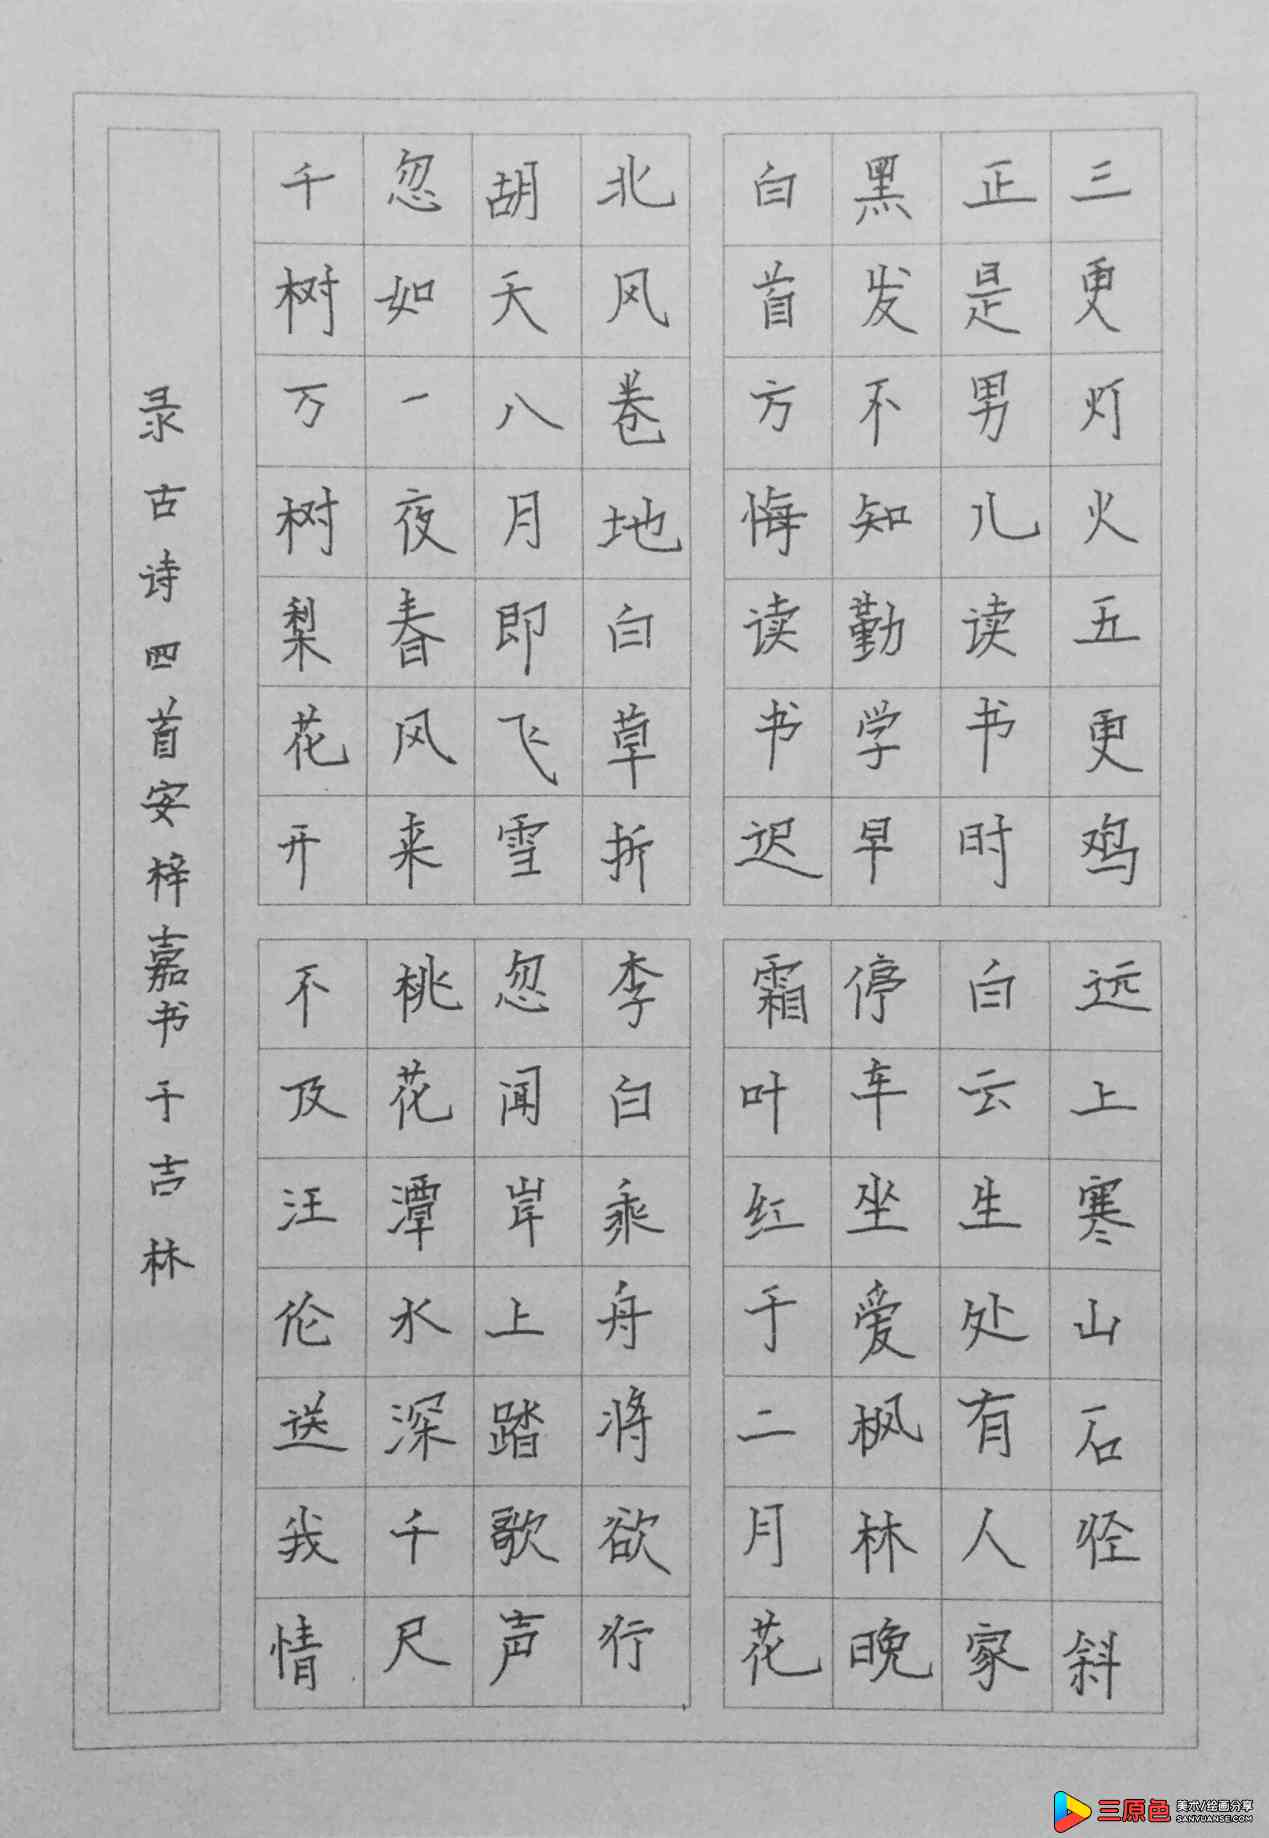 三更灯火五更鸡
正是男儿读书时
黑发不知勤学早
白首方悔读书迟
远上寒山石径斜
白云生处有人家
停车坐爱枫林晚
霜叶红于二月花
北风卷地白草折
胡天八月即飞雪
忽如一夜春风来
千树万树梨花开
李白乘舟将欲行
忽闻岸上踏歌声
桃花潭水深千尺
不及汪伦送我情
录古诗四首安梓嘉书于吉林
三原色 美术/绘画分享
SANYUANSE.COM